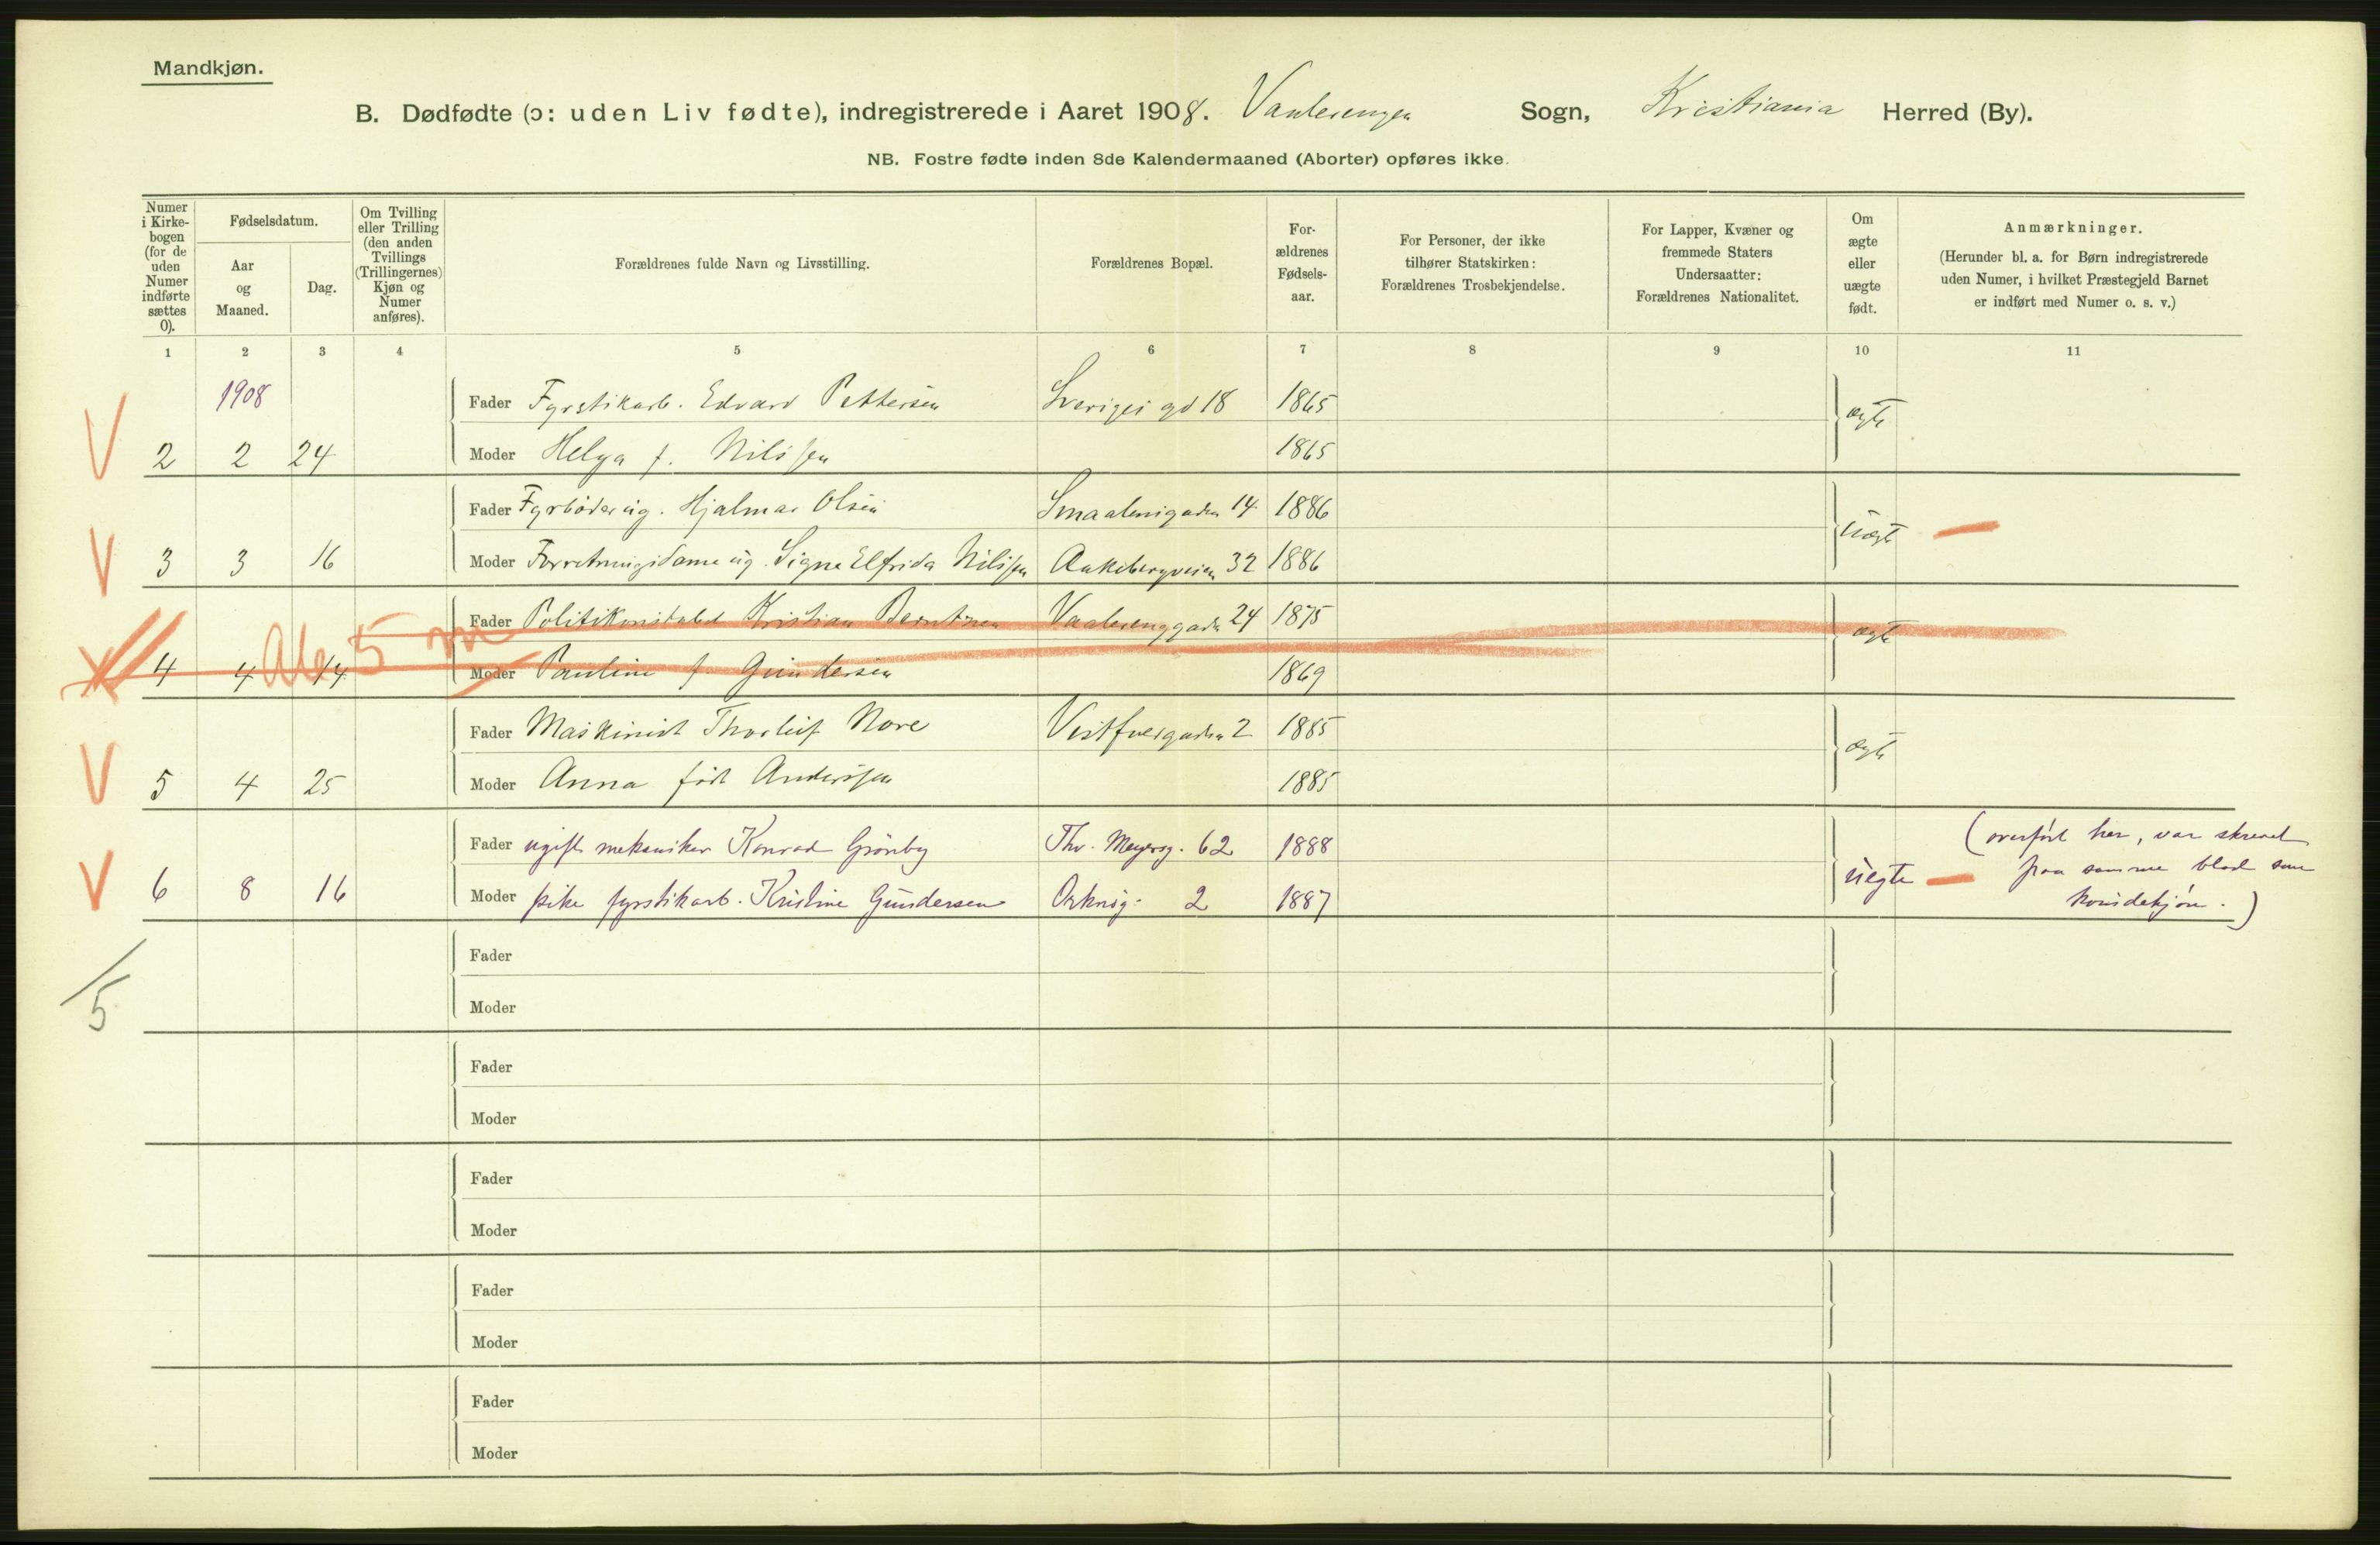 Mandkjøn.
B. Dødfødte (ɔ: uden Liv fødte), indregistrerede i Aaret 1908. Vaalerengen Sogn, Kristiania Herred (By).
NB. Fostre fødte inden 8de Kalendermaaned (Aborter) opføres ikke.
Numer i Kirke-bogen (for de uden Numer indførte sættes 0).
Fødselsdatum.
Aar og Maaned.
Dag.
Om Tvilling eller Trilling (den anden Tvillings (Trillingernes) Kjøn og Numer anføres).
Forældrenes fulde Navn og Livsstilling.
Forældrenes Bopæl.
For-ældrenes Fødsels-aar.
For Personer, der ikke tilhører Statskirken: Forældrenes Trosbekjendelse.
For Lapper, Kvæner og fremmede Staters Undersaatter: Forældrenes Nationalitet.
Om ægte eller uægte født.
Anmærkninger.
(Herunder bl. a. for Børn indregistrerede uden Numer, i hvilket Præstegjeld Barnet er indført med Numer o. s. v.)
1 2 3 4 5 6 7 8 9 10 11
1908
Fader Fyrstikarb. Edvard Pettersen Sveriges gd 18 1865 ægte
V 2 2 24 Moder Helga f. Nilssen 1865
Fader Fyrbøder ug. Hjalmar Olsen Smaalensgaden 14 1886 uægte
V 3 3 16 Moder Forretningsdame ug. Signe Elfrida Nilssen Aakebergveien 32 1886
Fader Politikonstabel Kristian Berntsen Vaalerenggaden 24 1875 ægte
4 4 14 5 m Moder Pauline f. Gundersen 1869
Fader Maskinist Thorleif Nore Vestfossgaden 2 1885 ægte
V 5 4 25 Moder Anna født Anderssen 1885
Fader ugift mekaniker Konrad Grønby Thv. Meyersg. 62 1888 uegte (overført her, var skrevet
V 6 8 16 Moder pike fyrstikarb. Kristine Gundersen Orknøg. 2 1887 paa samme blad som
kvindekjøn.)
Fader
5
Moder
Fader
Moder
Fader
Moder
Fader
Moder
Fader
Moder